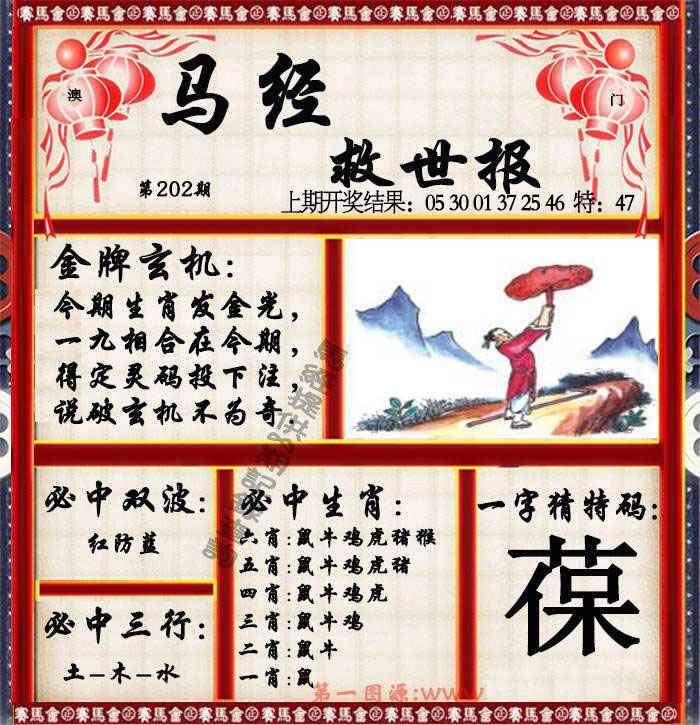 賽馬會㊣賽馬會㊣賽馬會㊣賽馬會㊣賽馬會㊣賽馬會㊣賽馬會㊣賽馬會
澳
门
马经
救世报
第202期
上期开奖结果：05 30 01 37 25 46 特：47
金牌玄机：
今期生肖发金光，
一九相合在今期，
得定灵码投下注，
说破玄机不为奇.
必中双波：
红防蓝
必中三行：
土–木–水
必中生肖：
六肖:鼠牛鸡虎猪猴
五肖:鼠牛鸡虎猪
四肖:鼠牛鸡虎
三肖:鼠牛鸡
二肖:鼠牛
一肖:鼠
一字猜特码:
葆
第一图源:www